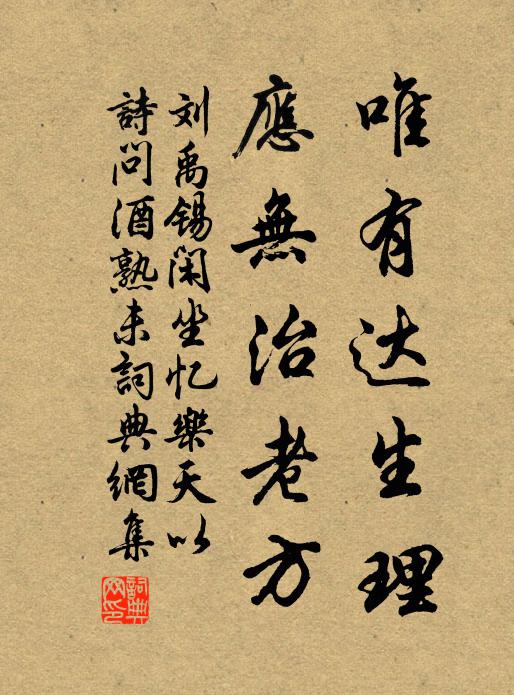 唯有达生理
應無治老方
刘禹锡闲坐忆樂天以
詩問酒熟未詞典網集
詞典网印